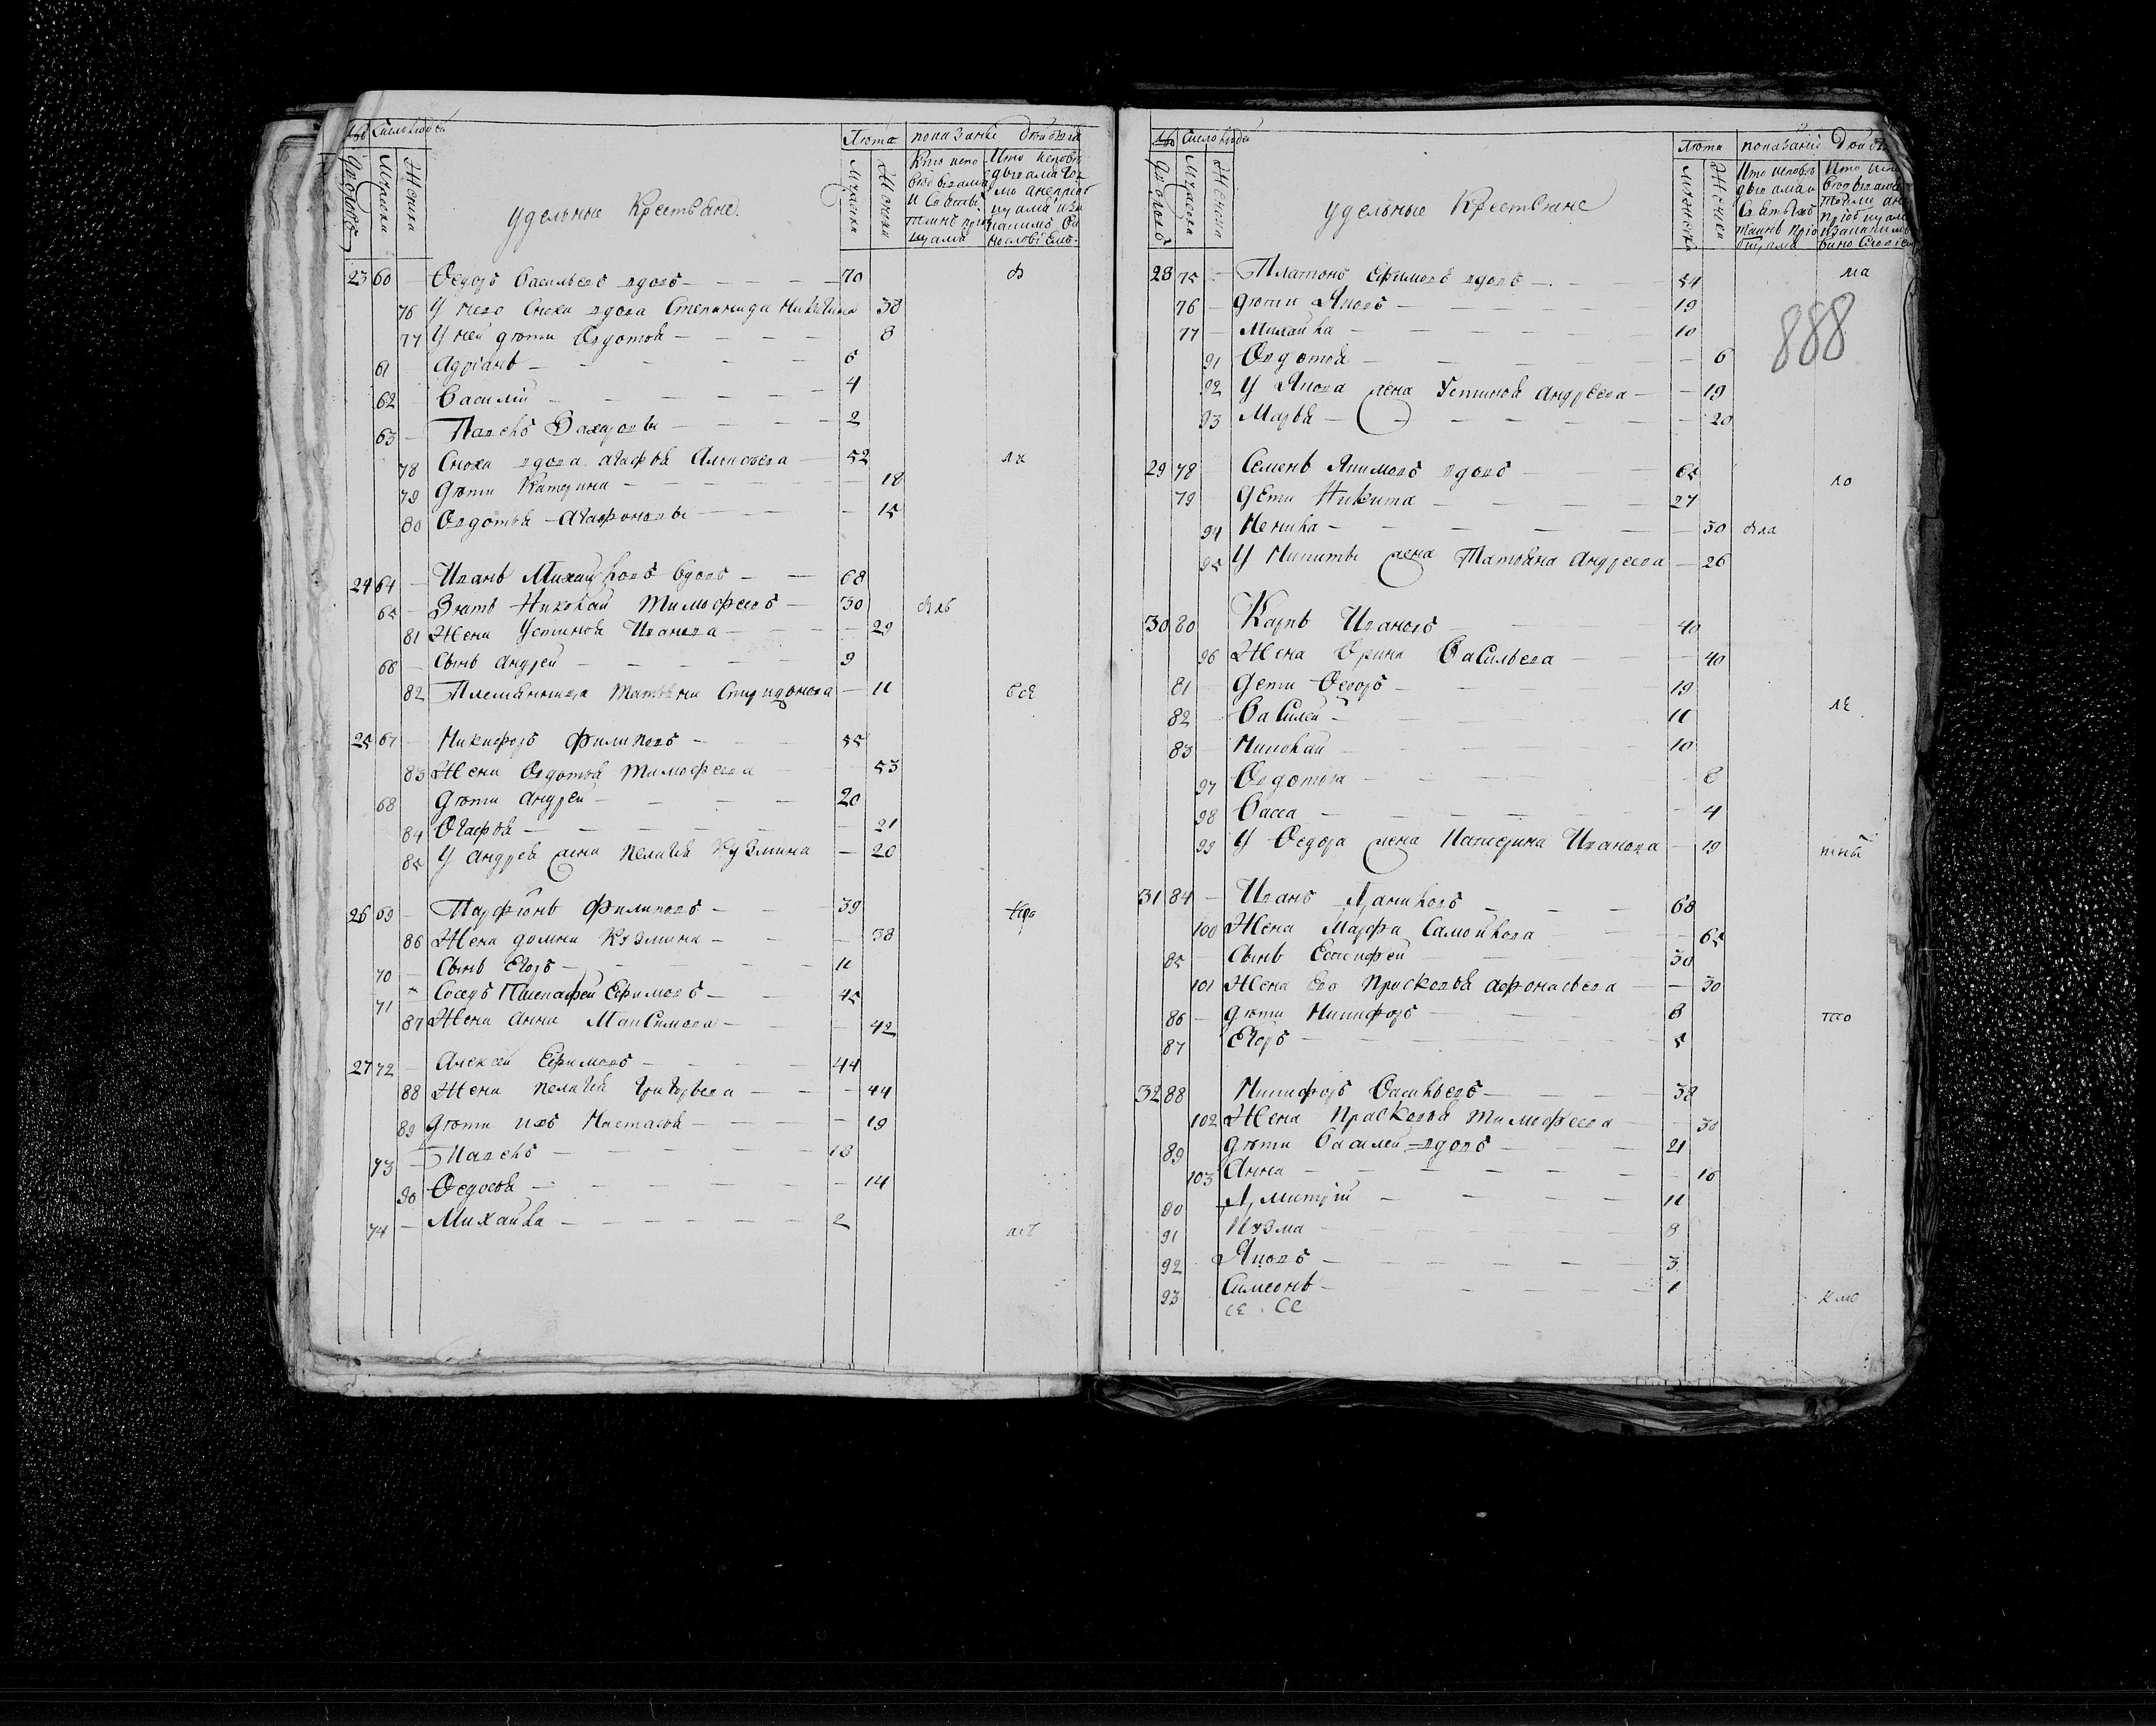 Число людей
Лѣта показаніе
дворовъ
Мужеска
Женска
Удельные Крестьяне.
Мужеска
Женска
23 60 Ѳедоръ Васильевъ вдовъ 70
76 У него сноха вдова Степанида Никитина 38
77 У ней дѣти Овдотья 8
61 Адріанъ 6
62 Василій 4
63 Павелъ Захаровы 2
78 Сноха вдова Агафья Алексѣева 52
79 Дѣти Катерина 18
80 Овдотья Агафоновы 15
24 64 Иванъ Михайловъ вдовъ 68
65 Зять Николай Тимофеевъ 30
81 Жена Устинья Иванова 29
66 Сынъ Андрей 9
82 Племянница Татьяна Спиридонова 11
25 67 Никифоръ Филиповъ 55
83 Жена Овдотья Тимофеева 53
68 Дѣти Андрей 20
84 Огафья 21
85 У Андрея жена Пелагия Кузмина 20
26 69 Парфіонъ Филиповъ 39
86 Жена Домна Кузмина 38
70 Сынъ Егоръ 11
71 Соседъ Ефимовъ 45
87 Жена Анна Максимова 42
27 72 Алексей Ефимовъ 44
88 Жена Пелагия Григорьева 44
89 Дѣти ихъ Настасья 19
73 Павелъ 18
90 Ѳедосья 14
74 Михайла 2
Число людей
Лѣта показаніе
дворовъ
Мужеска
Женска
Удельные Крестьяне
888
28 75 Платонъ Ефимовъ вдовъ 54
76 Дѣти Яковъ 19
77 Михайла 10
91 Овдотья 6
92 У Якова жена Устинья Андреева 19
93 Марья 20
29 78 Семенъ Якимовъ вдовъ 65
79 Дети Никита 27
94 30
95 У Никиты жена Татьяна Андреева 26
30 80 Карпъ Ивановъ 40
96 Жена Орина Васильева 40
81 Дети Ѳедоръ 19
82 Василей 11
83 Николай 10
97 Овдотья 8
98 Васса 4
99 У Ѳедора жена Катерина Иванова 19
31 84 Иванъ Даниловъ 68
100 Жена Марфа Самойлова 65
85 Сынъ Естифей 30
101 Жена его Прасковья Афонасьева 30
86 Дѣти Никифоръ 8
87 Егоръ 5
32 88 Никифоръ Васильевъ 38
102 Жена Прасковья Тимофеева 38
89 Дѣти Василей вдовъ 21
103 Анна 16
90 Дмитрій 11
91 Кузма 8
92 Яковъ 3
93 Симеонъ 1